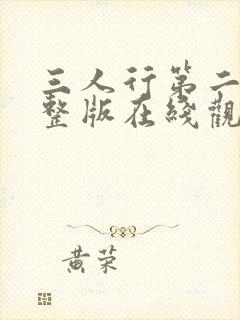 三人行第二
整版在綫觀
黄荣